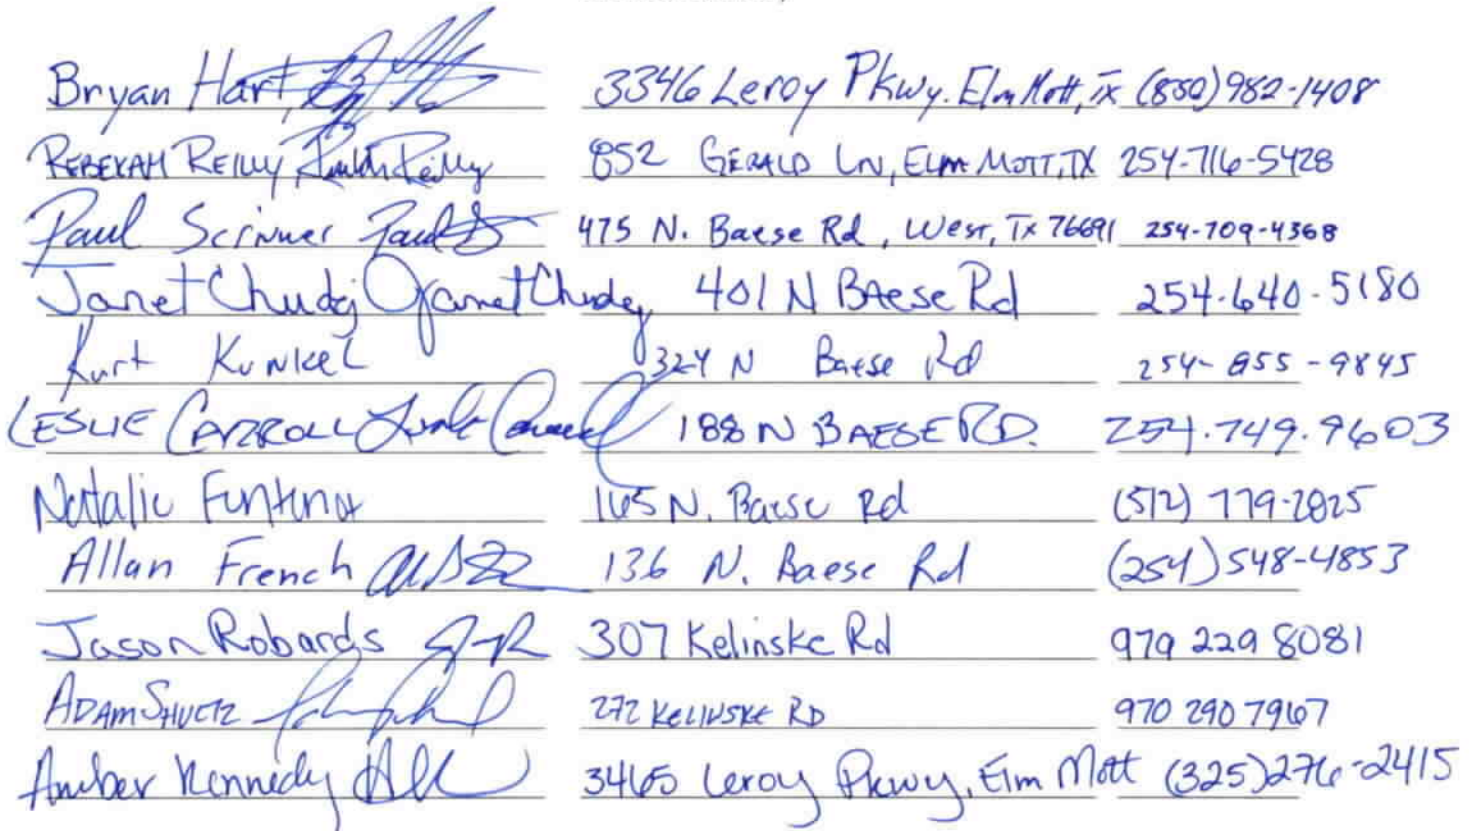 Bryan Hart, 3346 Leroy Pkwy. Elm Mott, TX (850) 982-1408
REBEKAH REILLY Rebekah Reilly 852 GERALD LN, ELM MOTT, TX 254-716-5428
Paul Scrivner Paul 475 N. Baese Rd, West, Tx 76691 254-709-4368
Janet Chudej Janet Chudej 401 N BAese Rd 254-640-5180
Kurt Kunkel 324 N Baese Rd 254-855-9845
LESLIE CARROLL Leslie Carroll 188 N BAESE RD. 254.749.9603
Natalie Fontenot 165 N. Baese Rd (512) 779-2825
Allan French 136 N. Baese Rd (254) 548-4853
Jason Robards 307 Kelinske Rd 979 229 8081
ADAM SHULTZ 272 KELINSKE RD 970 290 7967
Amber Kennedy 3465 Leroy Pkwy, Elm Mott (325) 276-2415